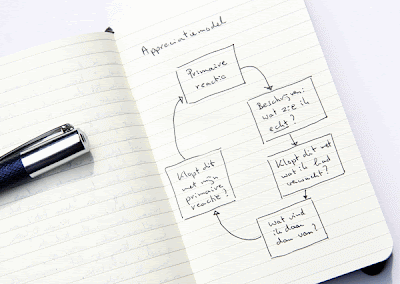 Appreciatiemodel
Primaire
reactie
Beschrijven:
wat zie ik
echt?
Klopt dit met
wat ik had
verwacht?
wat vind
ik daar
dan van?
Klopt dit
met mijn
primaire
reactie?